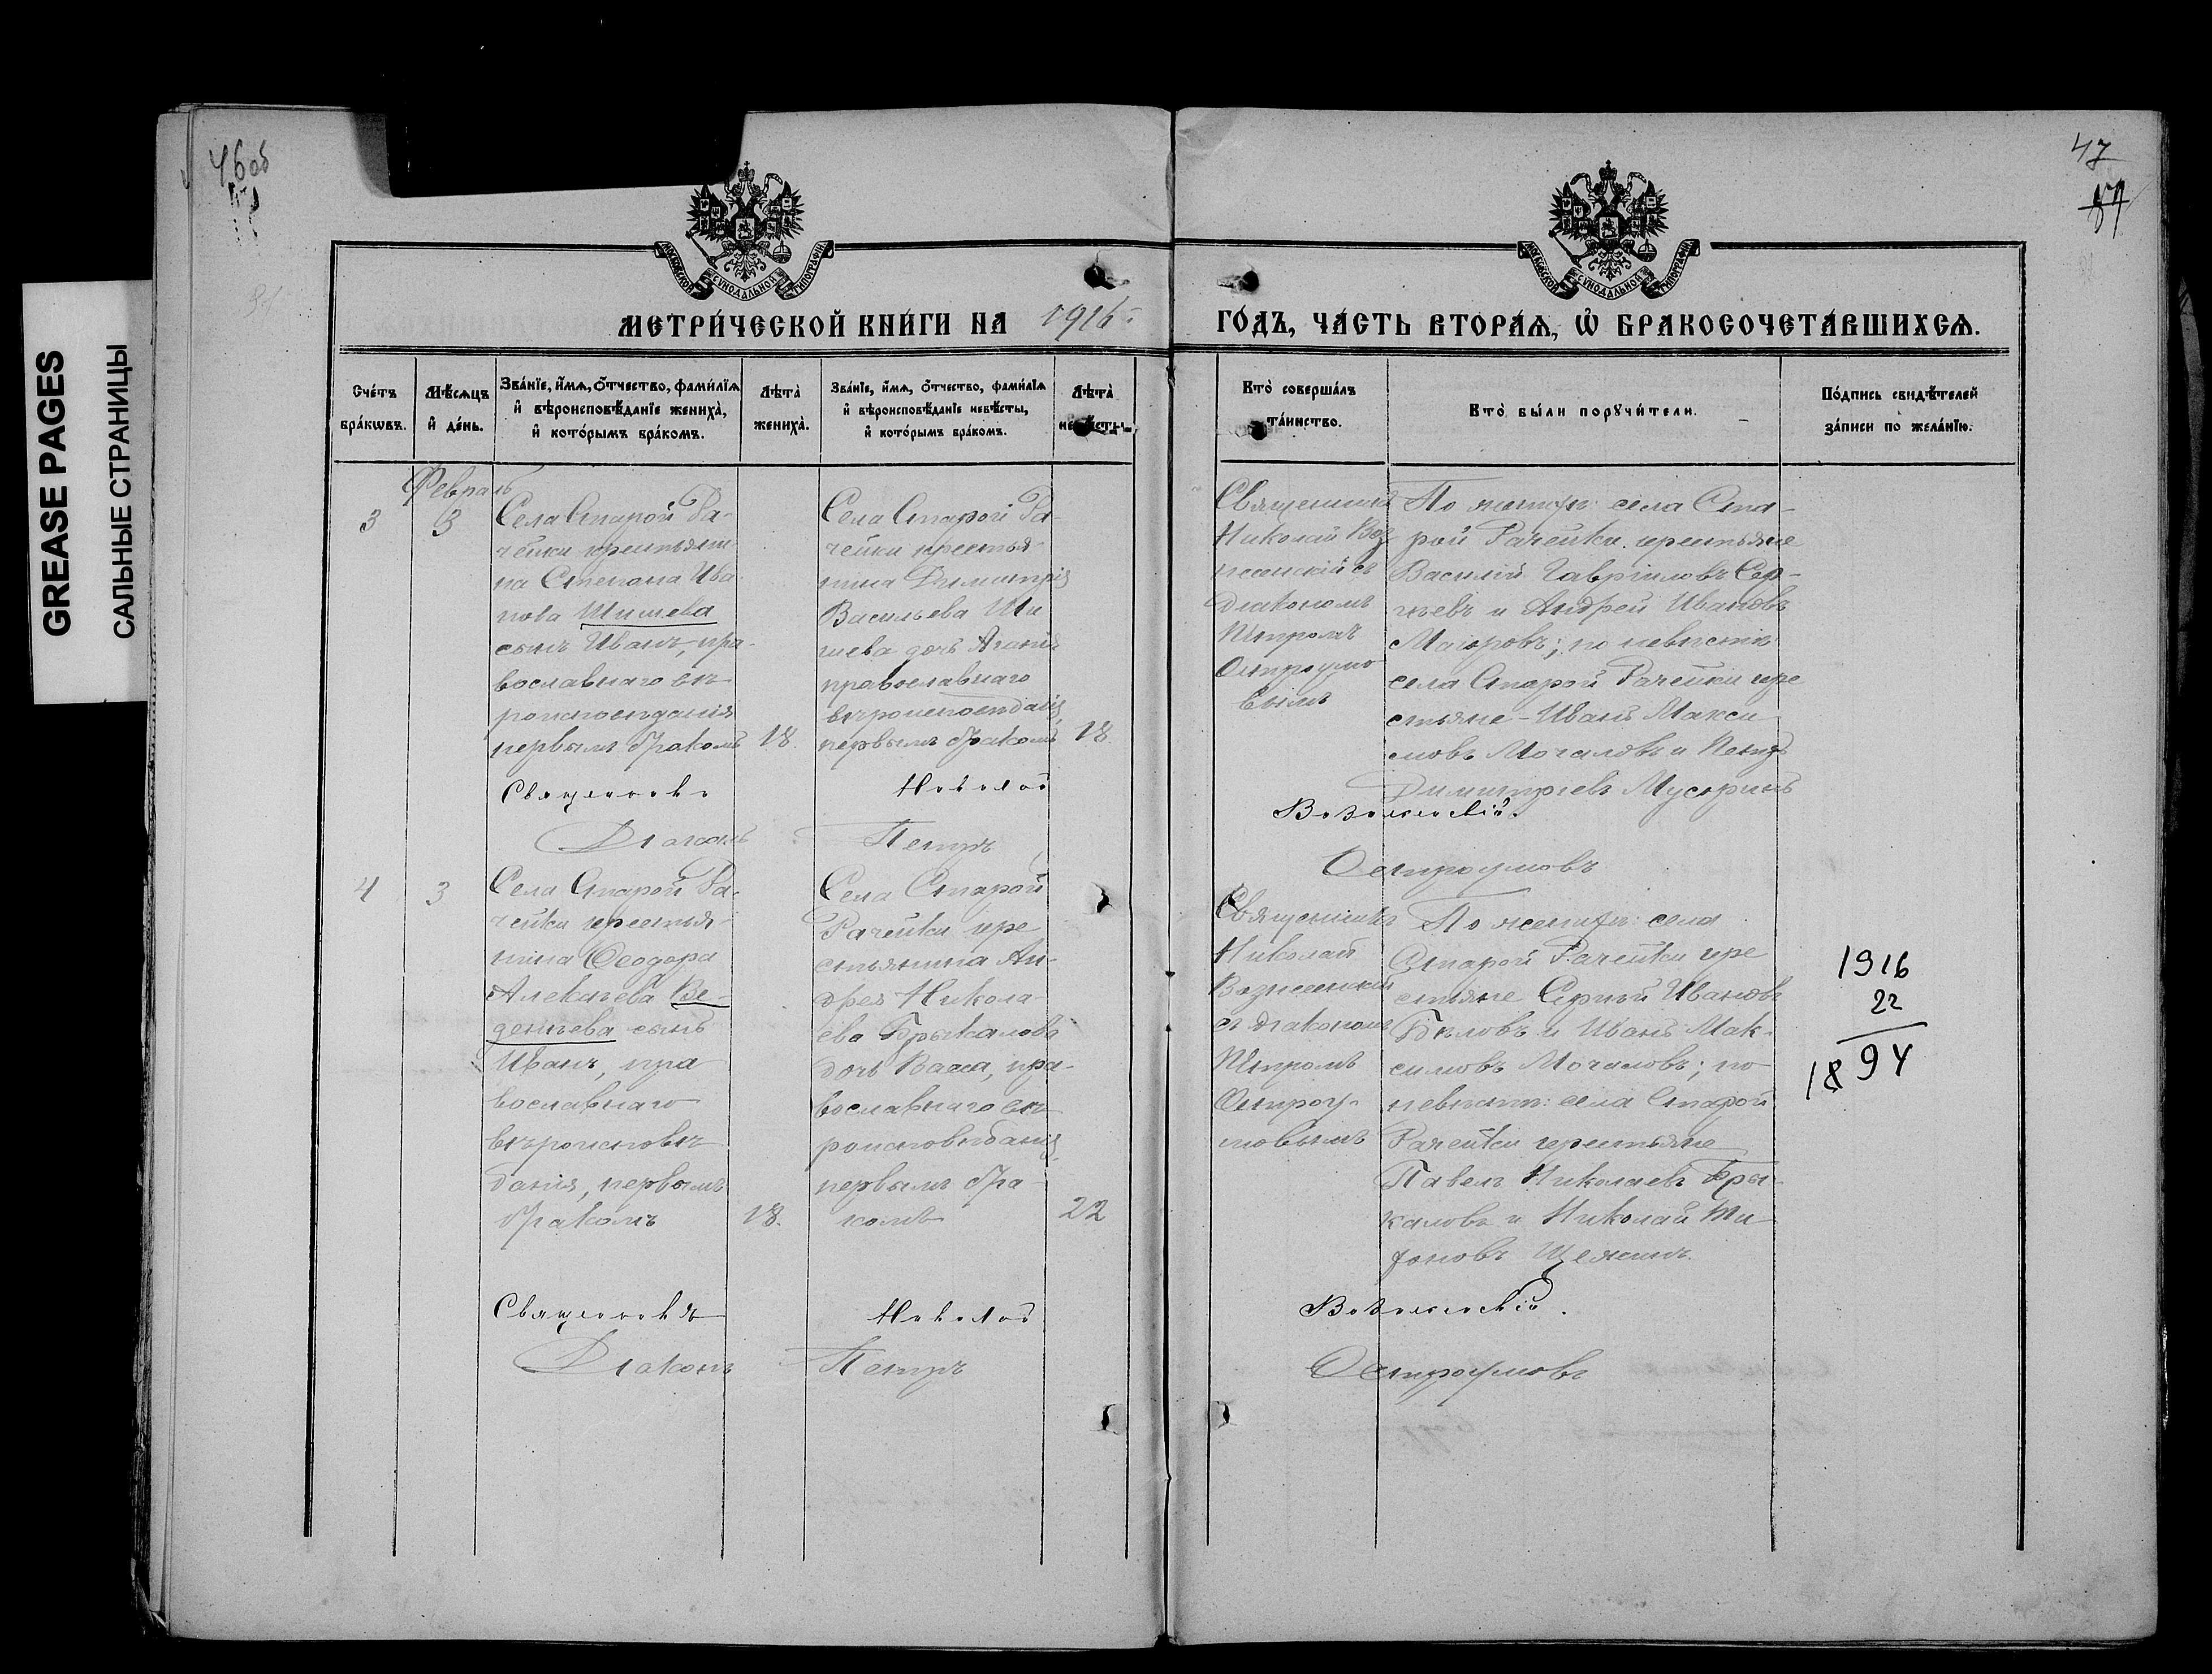 GREASE PAGES
САЛЬНЫЕ СТРАНИЦЫ
46об
47
МОСКОВСКОЙ СѴНОДАЛЬНОЙ ТИПОГРАФІИ
МОСКОВСКОЙ СѴНОДАЛЬНОЙ ТИПОГРАФІИ
МЕТРИ́ЧЕСКОЙ КНИ́ГИ НА 1916 г.
ГО́ДЪ, ЧА́СТЬ ВТОРА́Ѧ, Ѽ БРАКОСОЧЕТА́ВШИХСѦ.
Сче́тъ бра́кѡвъ.
Мѣ́сѧцъ и҆ де́нь.
Зва́нїе, и҆́мѧ, ѻ҆́тчество, фами́лїѧ и҆ вѣроисповѣ́данїе жениха̀, и҆ кото́рымъ бра́комъ.
Лѣ́та жениха̀.
Зва́нїе, и҆́мѧ, ѻ҆́тчество, фами́лїѧ и҆ вѣроисповѣ́данїе невѣ́сты, и҆ кото́рымъ бра́комъ.
Лѣ́та невѣ́сты.
Кто̀ соверша́лъ та́инство.
Кто̀ бы́ли порꙋчи́тели.
По́дпись свидѣ́телей за́писи по жела́нїю.
Февраль
3
3
Села Старой Ра-
чейки крестьяни
на Степана Ива
нова Шишева
сынъ Иванъ, пра-
вославнаго вѣ-
роисповѣданія
первымъ бракомъ
18.
Села Старой Ра-
чейки крестья-
нина Димитрія
Васильева Ши
шева дочь
православнаго
вѣроисповѣданія,
первымъ бракомъ
18
Священникъ
Николай Воз
несенскій съ
діакономъ
Петромъ
Остроумо
вымъ
По женихѣ: села Ста-
рой Рачейки крестьяне
Василій Гавріиловъ Сер-
гѣевъ и Андрей Ивановъ
Маіоровъ; по невѣстѣ
села Старой Рачейки кре
стьяне - Иванъ Макси
мовъ Мочаловъ и Петръ
Димитріевъ Мусоринъ
Священникъ Николай Вознесенскій.
Діаконъ Петръ Остроумовъ
4
3
Села Старой Ра-
чейки крестья-
нина Ѳеодора
Алексѣева Ве-
денѣева сынъ
Иванъ, пра
вославнаго
вѣроисповѣ
данія, первымъ
бракомъ
18.
Села Старой
Рачейки кре
стьянина Ан-
дрея Никола-
ева Брыкалова
дочь Васса, пра-
вославнаго вѣ-
роисповѣданія,
первымъ бра-
комъ
22
Священникъ
Николай
Вознесенскій
съ діакономъ
Петромъ
Остроу-
мовымъ
По женихѣ: села
Старой Рачейки кре
стьяне Сергѣй Ивановъ
Бѣловъ и Иванъ Мак-
симовъ Мочаловъ; по
невѣстѣ: села Старой
Рачейки крестьяне
Павелъ Николаевъ Бры-
каловъ и Николай Ти-
фоновъ
1916
22
1894
Священникъ Николай Вознесенскій.
Діаконъ Петръ Остроумовъ